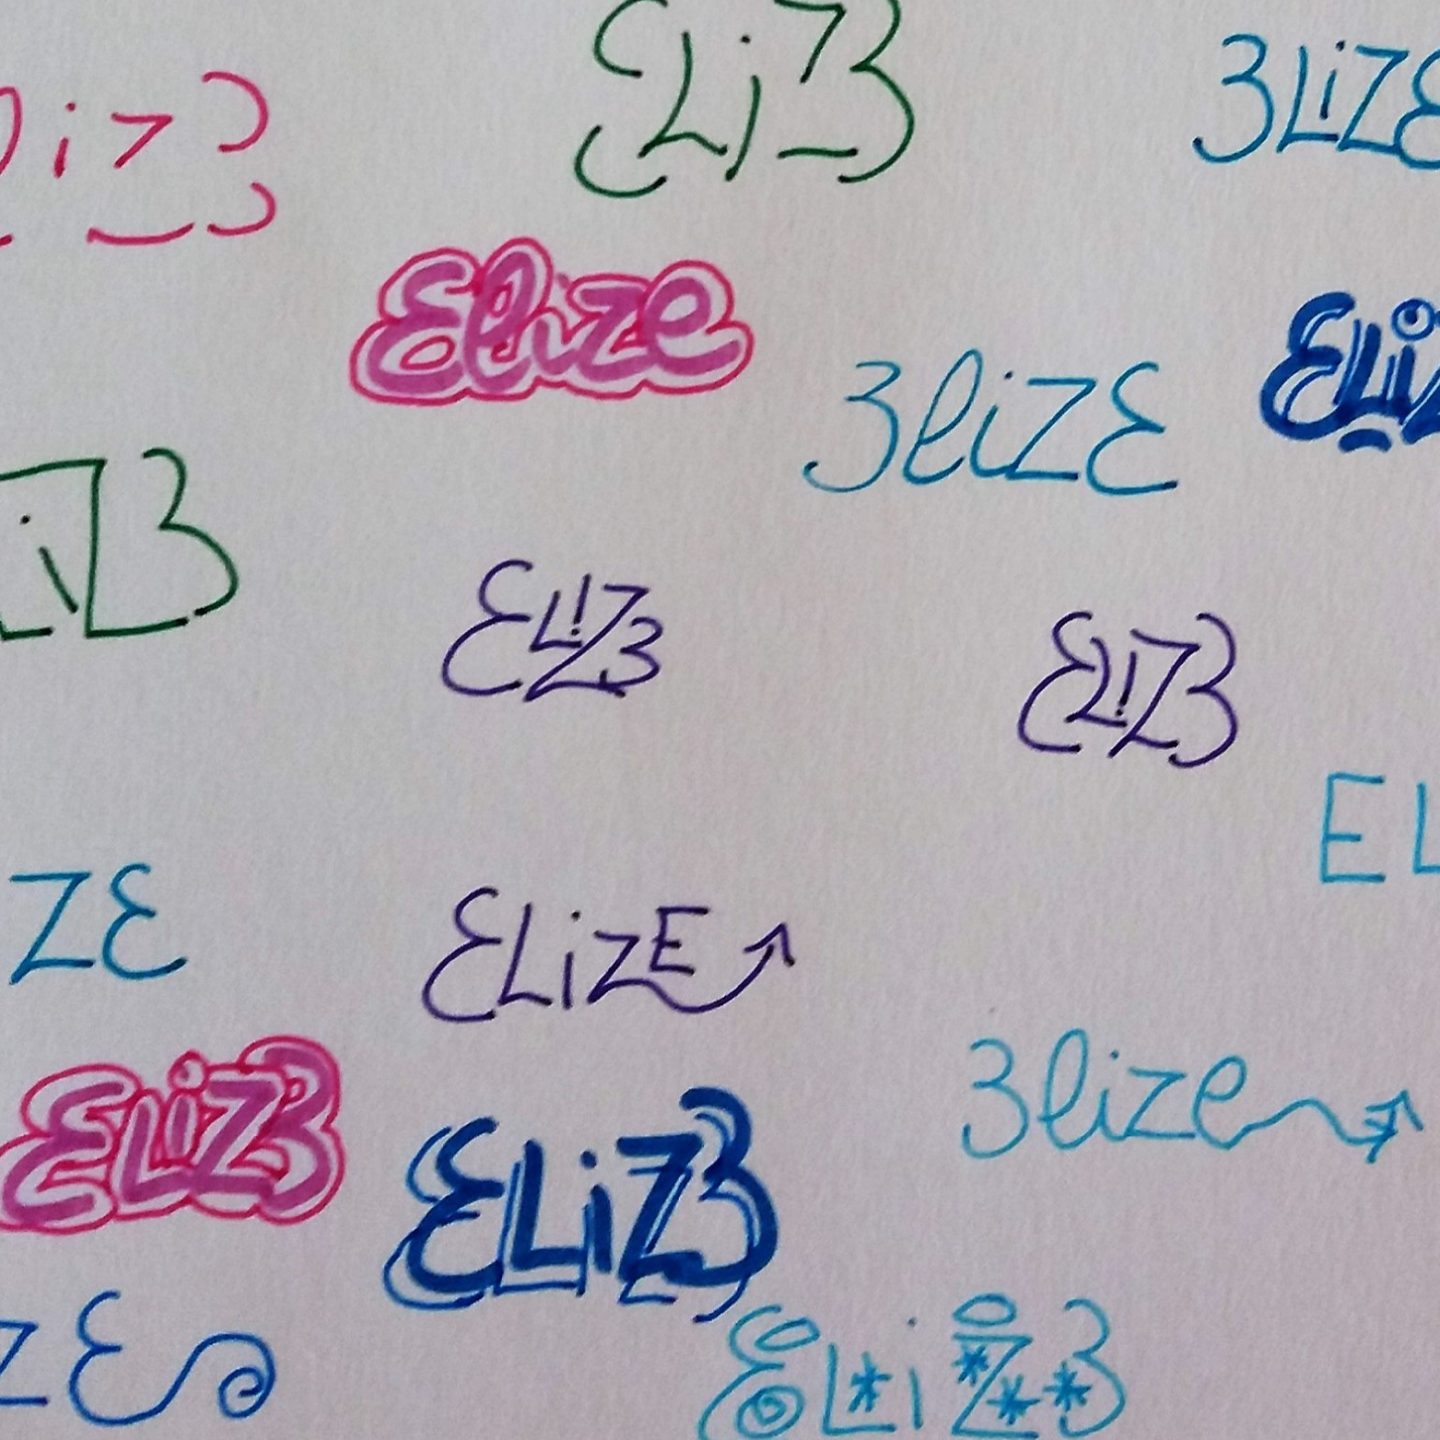 liz3
ELiZ3
3LiZE
Elize
3lizE
ELiZ
LiZ3
EL!Z3
EL!Z3
EL
ZE
ELizE
3lize
ELiZ3
ELiZ3
ZE
ELiZ3